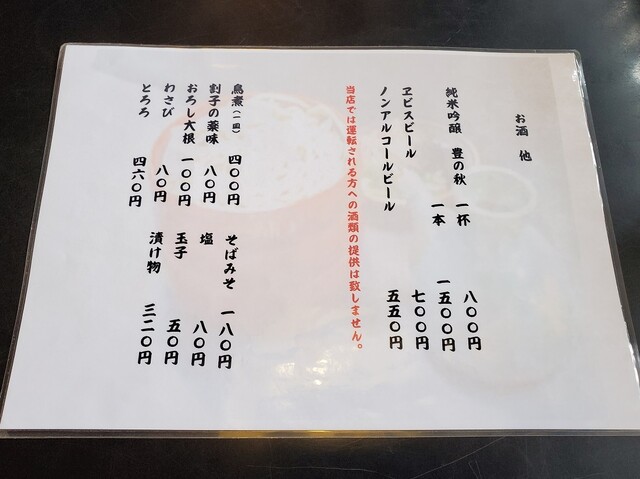 お酒　他
純米吟醸　豊の秋　一杯　八〇〇円
一本　一五〇〇円
ヱビスビール　七〇〇円
ノンアルコールビール　五五〇円
当店では運転される方への酒類の提供は致しません。
鳥煮（一皿）　四〇〇円　そばみそ　一八〇円
割子の薬味　八〇円　塩　八〇円
おろし大根　一〇〇円　玉子　五〇円
わさび　八〇円　漬け物　三二〇円
とろろ　四六〇円